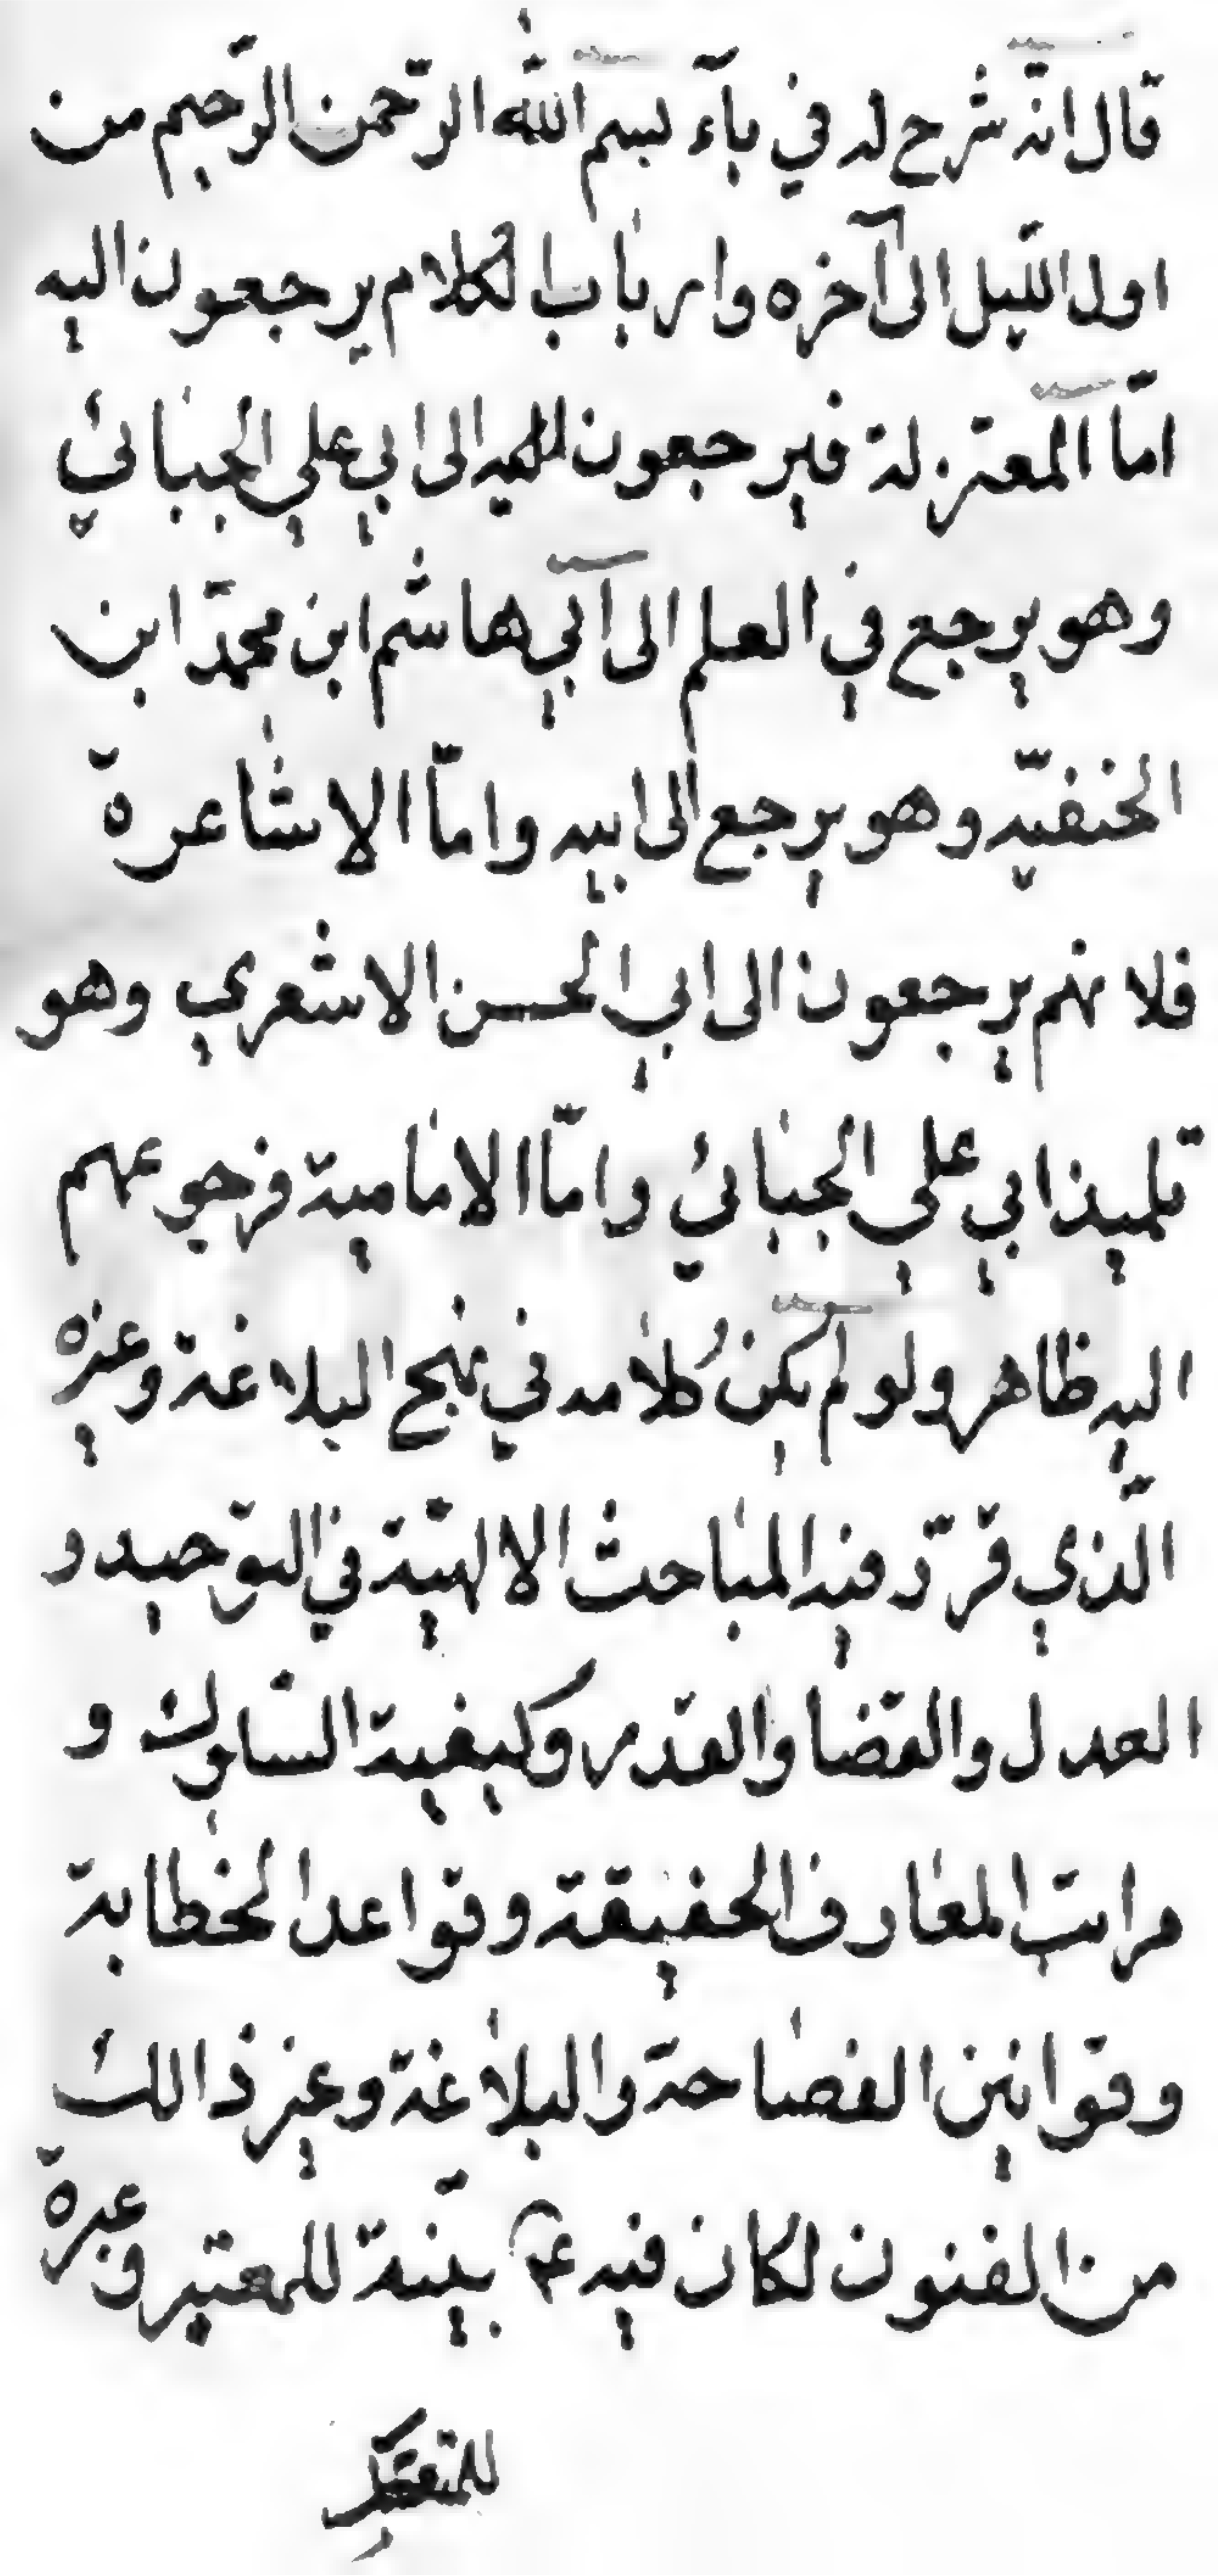 قال انّه شرح له في بآء بسم الله الرّحمن الرّحيم من
اول اللّيل الى آخره وارباب الكلام يرجعون اليه
امّا المعتزلة فيرجعون الى ابي علي الجبائي
وهو يرجع في العلم الى ابي هاشم ابن محمّد ابن
الحنفيّه وهو يرجع الى ابيه وامّا الاشاعرة
فلانهم يرجعون الى ابي الحسن الاشعري وهو
تلميذ ابي علي الجبائي وامّا الامامية فرجوعهم
اليه ظاهر ولو لم يكن كلامه في نهج البلاغة وغيره
الّذي قرّر فيه المباحث الالهيّة في التوحيد و
العدل والقضا والقدر وكيفية السّلوك و
مراتب المعارف الحقيقة وقواعد الخطابة
وقوانين الفصاحة والبلاغة وغير ذالك
من الفنون لكان فيه بيّنة للمعتبر وعبرة
للمتفكر